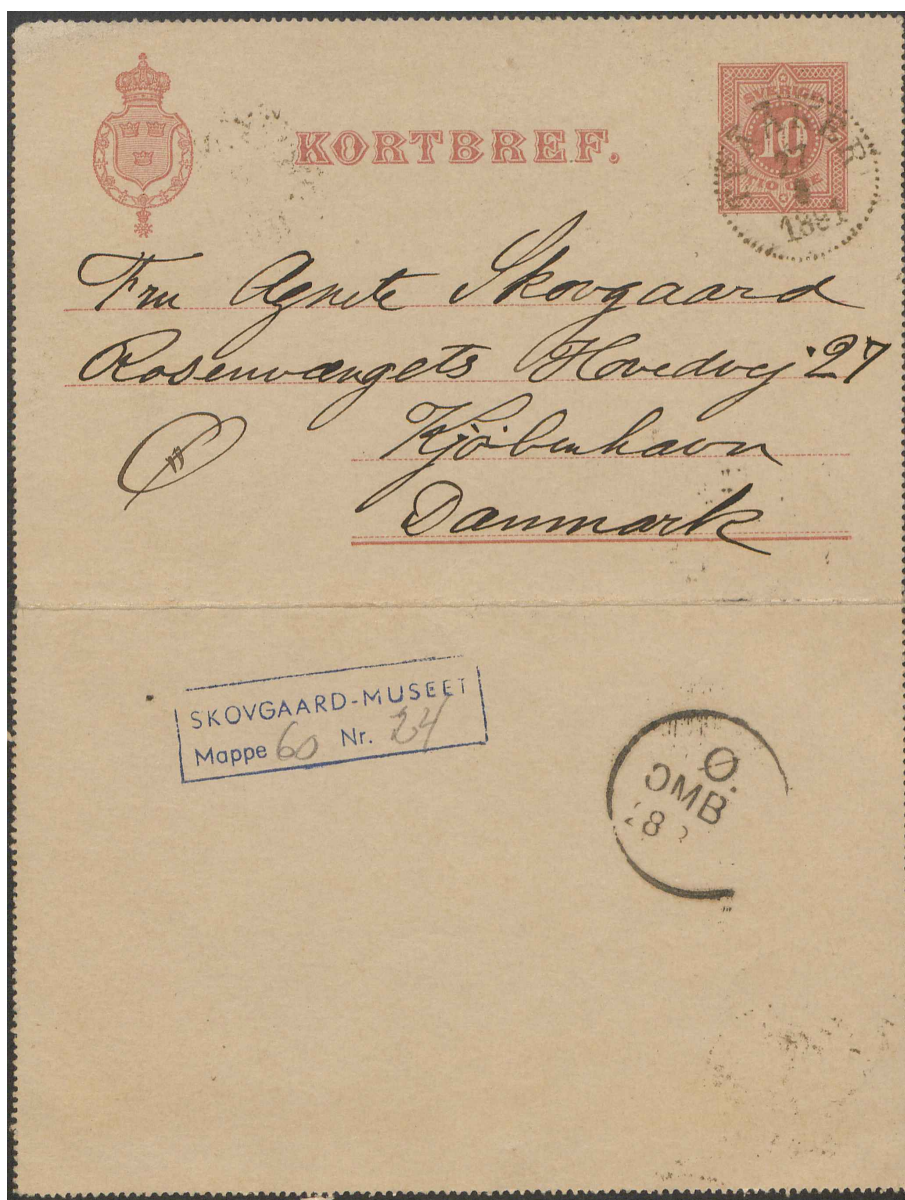 KORTBREF.
SVERIGE
10
10 ÖRE
27
Fru Agnete Skovgaard
Rosenvængets Hovedvej 27
Kjöbenhavn
Danmark
SKOVGAARD-MUSEET
Mappe 60 Nr. 24
Ø.
OMB